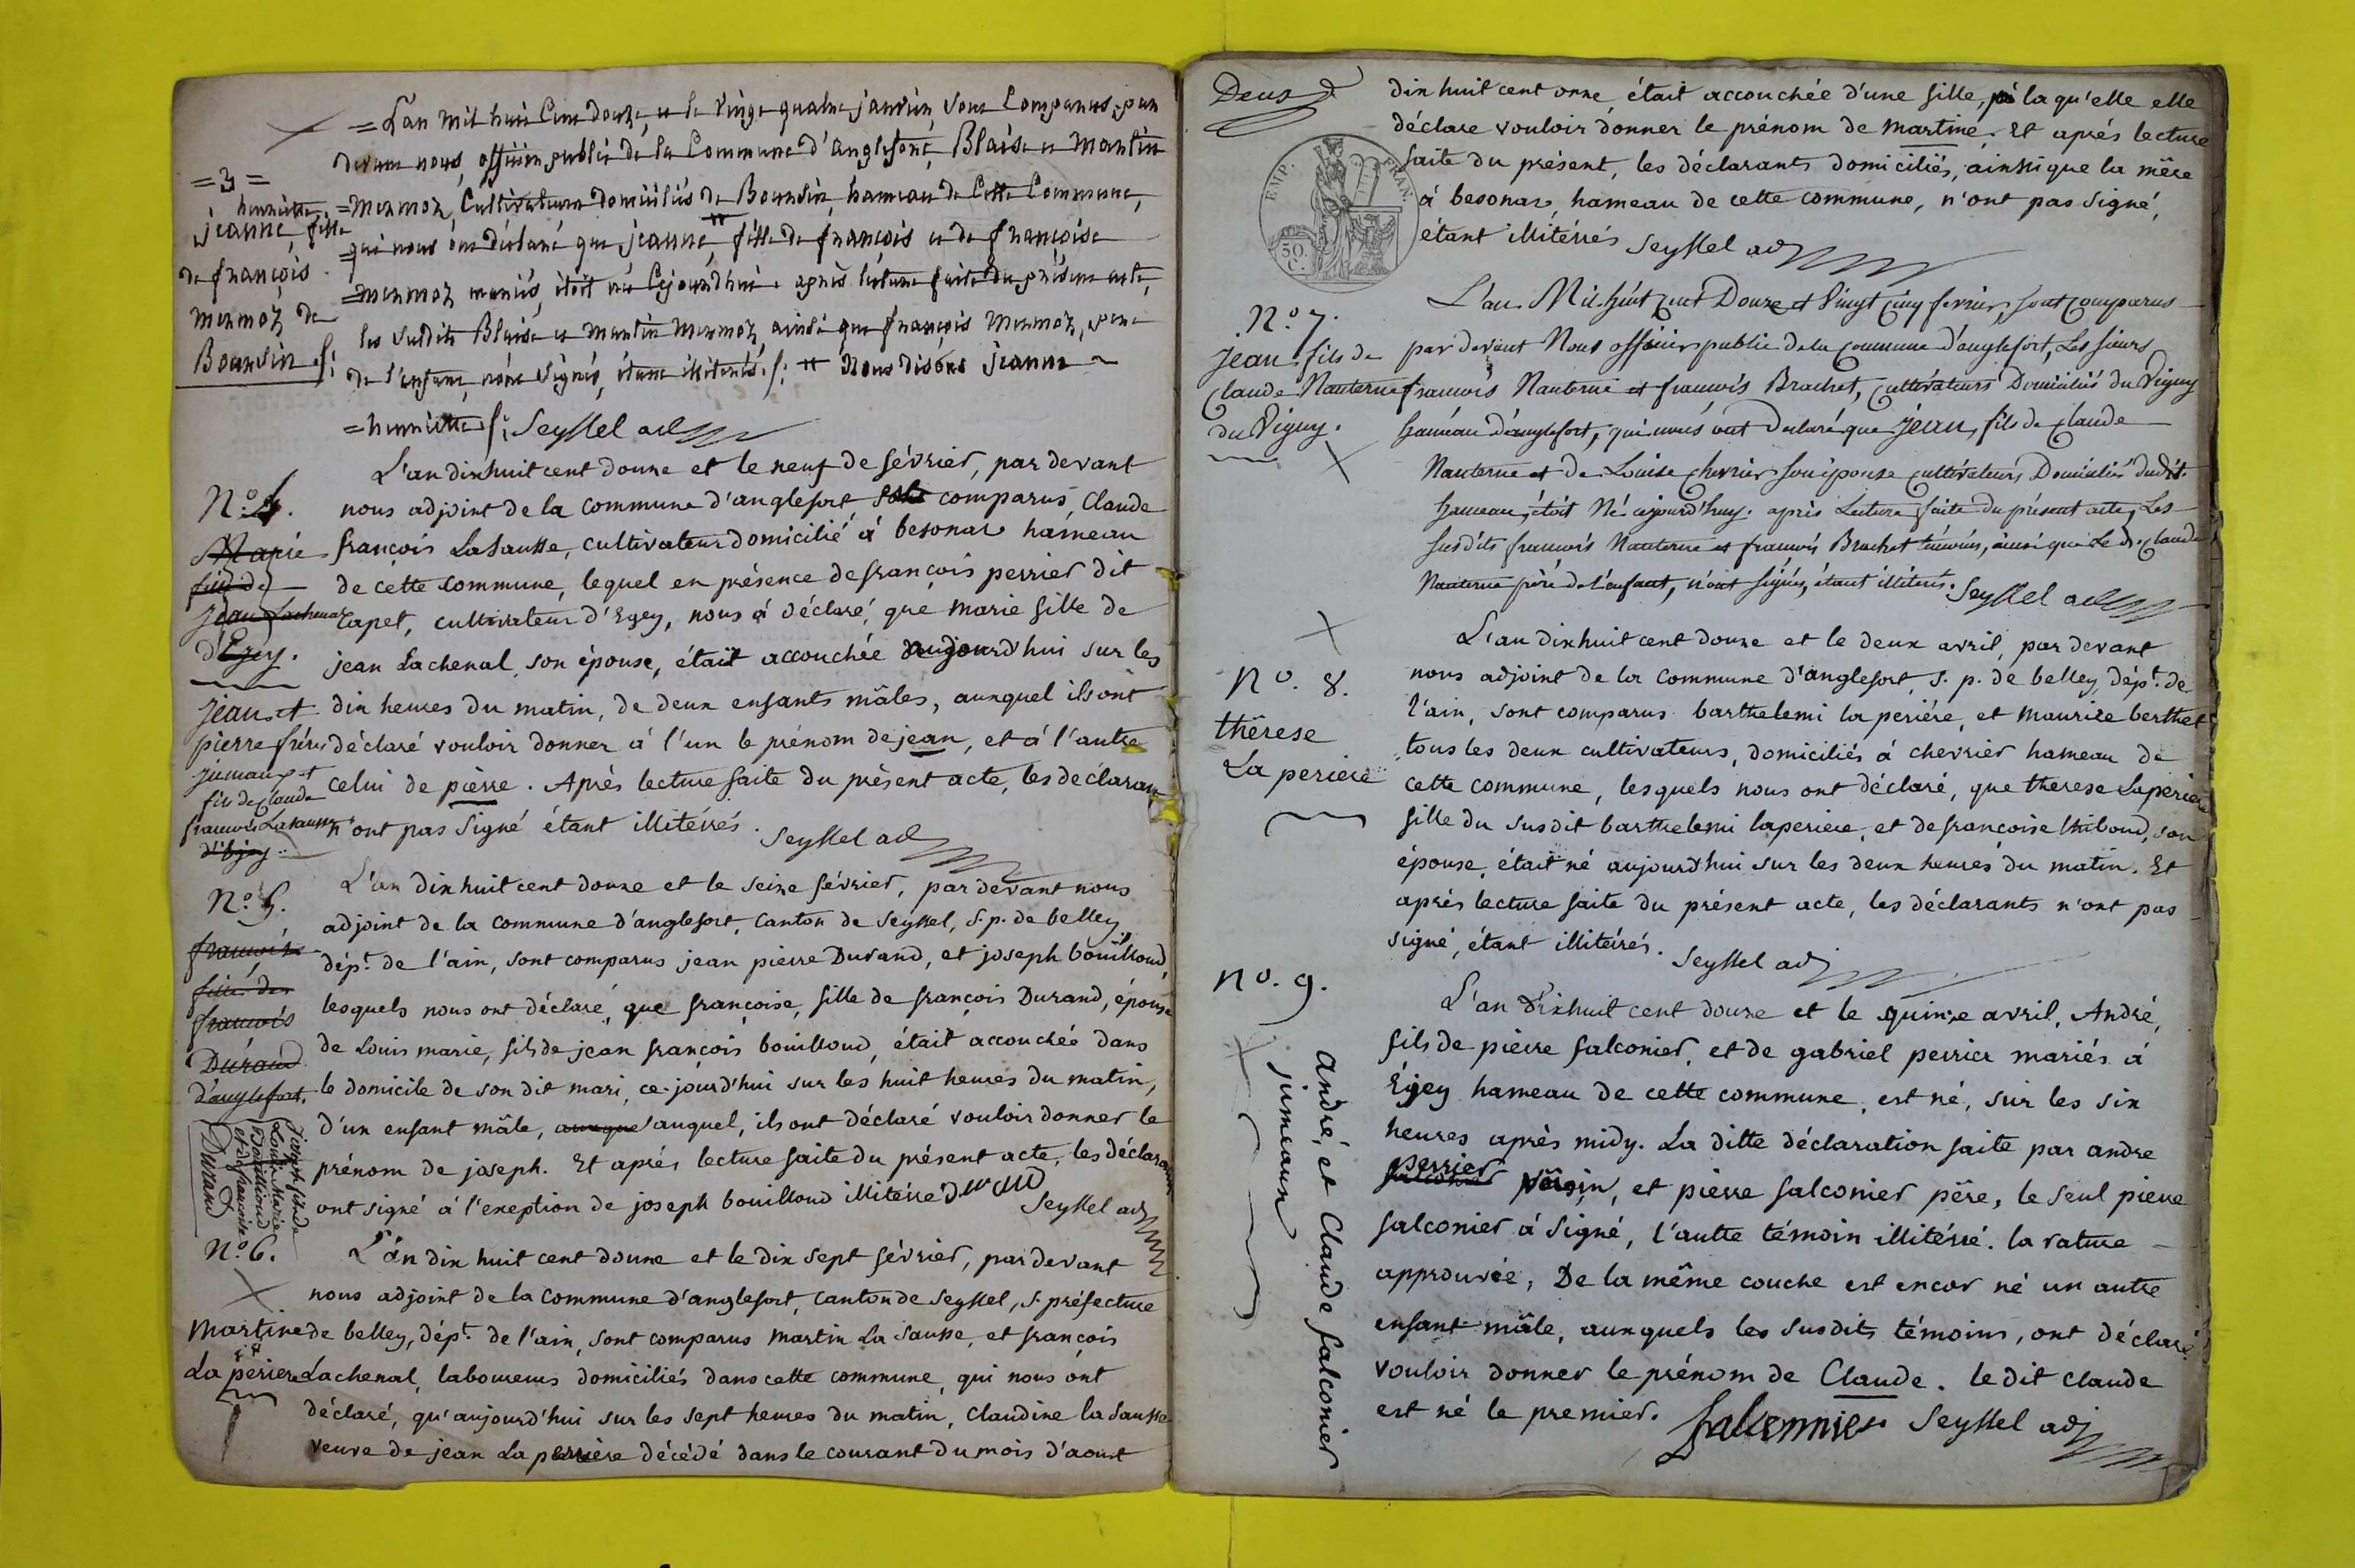 = L'an mil huit Cent douze, et le vingt quatre janvier, sont Comparus, par
devant nous, officier public de la Commune d'anglefort, Blaise et Martin
= 3 =
henriette
jeanne, fille
de françois
mermoz de
Boursin f:
= mermoz, Cultivateurs domiciliés de Boursin, hameau de Cette Commune,
qui nous ont déclaré que jeanne, fille de françois et de françoise
= mermoz mariés, étoit née Cejourd'hui. après lecture faite du présent acte,
les susdits Blaise et martin mermoz, ainsi que françois Mermoz, pere
de l'enfant, n'ont signés, étant illiterés f: # Nous disons jeanne ~
= henriette f: Seyssel adj
N.o 4.
Marie
fille de
jean Lachenal
d'Egey.
jean et
pierre frères
jumeaux et
fils de claude
françois Lasausse
d'Egey
L'an dixhuit cent douze et le neuf de février, par devant
nous adjoint de la commune d'anglefort, comparus, Claude
françois Lasausse, cultivateur domicilié à besonas hameau
de cette commune, lequel en présence de françois perrier dit
capet, cultivateur d'Egey, nous à déclaré, que marie fille de
jean Lachenal son épouse, était accouchée aujourd'hui sur les
dix heures du matin, de deux enfants mâles, auxquel ils ont
déclaré vouloir donner à l'un le prénom de jean, et à l'autre
celui de pièrre. Après lecture faite du présent acte, les déclarans
n'ont pas signé étant illitérrés. Seyssel adj
N.o 5.
françoise
fille de
françois
Durand
d'anglefort.
joseph fils de
Louis Marie
Bouilloud
et de françoise
Durand
L'an dixhuit cent douze et le seize février, par devant nous
adjoint de la commune d'anglefort, canton de Seyssel, S. p. de belley,
dép.t de l'ain, sont comparus jean pierre Durand, et joseph bouilloud,
lesquels nous ont déclaré, que françoise, fille de françois Durand, épouse
de Louis marie, fils de jean françois bouilloud, était accouchée dans
le domicile de son dit mari, ce-jourd'hui sur les huit heures du matin,
d'un enfant mâle, auxque auquel, ils ont déclaré vouloir donner le
prénom de joseph. Et après lecture faite du présent acte, les déclarans
ont signé à l'exeption de joseph bouilloud illitérré Seyssel adj
N.o 6.
Martine
La periere
L'an dix huit cent douze et le dix sept février, par devant
nous adjoint de la commune d'anglefort, canton de Seyssel, S. préfecture
de belley, dép.t de l'ain, sont comparus martin La sausse, et françois
Lachenal, laboureurs domiciliés dans cette commune, qui nous ont
déclaré, qu'aujourd'hui sur les sept heures du matin, claudine la sausse
veuve de jean La perrière décédé dans le courant du mois d'aoust
Deux
dix huit cent onze, était accouchée d'une fille, à laqu'elle elle
déclare vouloir donner le prénom de martine. Et après lecture
faite du présent, les déclarants domiciliés, ainsi que la mère
à besonas, hameau de cette commune, n'ont pas signé,
étant illitérrés Seyssel adj
EMP. FRAN.
50. C.
N.o 7.
jean, fils de
Claude Nanterne
du Vigny.
L'an Mil huit cent Douze et Vingt cinq fevrier, sont comparus
par devant Nous officier public de la commune d'anglefort, Les sieurs
françois Nanterne et françois Brachet, cultivateurs Domiciliés du Vigny
hameau d'anglefort, qui nous ont Declaré que jean, fils de Claude
Nanterne et de Louise Chevrier son épouse cultivateurs Domiciliés dudit
hameau, étoit Né cejourd'huy. après Lecture faite du présent acte, Les
susdits françois Nanterne et françois Brachet témoins, ainsi que Le d. Claude
Nanterne père de l'enfant, n'ont signés, étant illiterés. Seyssel adj
N.o 8.
thérese
La periere
L'an dixhuit cent douze et le deux avril, par devant
nous adjoint de la commune d'anglefort, S. p. de belley, dép.t de
l'ain, sont comparus barthelemi la periére, et maurice berthet
tous les deux cultivateurs, domiciliés à chevrier hameau de
cette commune, lesquels nous ont déclaré, que therese Laperiere
fille du susdit barthelemi laperiere, et de françoise thiboud, son
épouse, était né aujourd'hui sur les deux heures du matin. Et
après lecture faite du présent acte, les déclarants n'ont pas
signé, étant illitérés. Seyssel adj
N.o 9.
André, et Claude falconier
jumeaux
L'an dixhuit cent douze et le quinze avril, André,
fils de pièrre falconier, et de gabriel perrier mariés à
Égey hameau de cette commune, est né, sur les six
heures après midy. La ditte déclaration faite par andre
perrier
falconier voisin, et pierre falconier père, le seul pierre
falconier à signé, l'autre témoin illitérré. la rature
approuvée, De la même couche est encor né un autre
enfant mâle, auxquels les susdits témoins, ont déclaré
vouloir donner le prénom de Claude. le dit claude
est né le premier. falconnier Seyssel adj